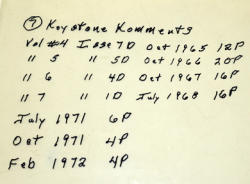 ⑦ Keystone Komments
Vol #4 Issue 7D Oct 1965 12P
" 5 " 5D Oct 1966 20P
" 6 " 4D Oct 1967 16P
" 7 " 1D July 1968 16P
July 1971 6P
Oct 1971 4P
Feb 1972 4P